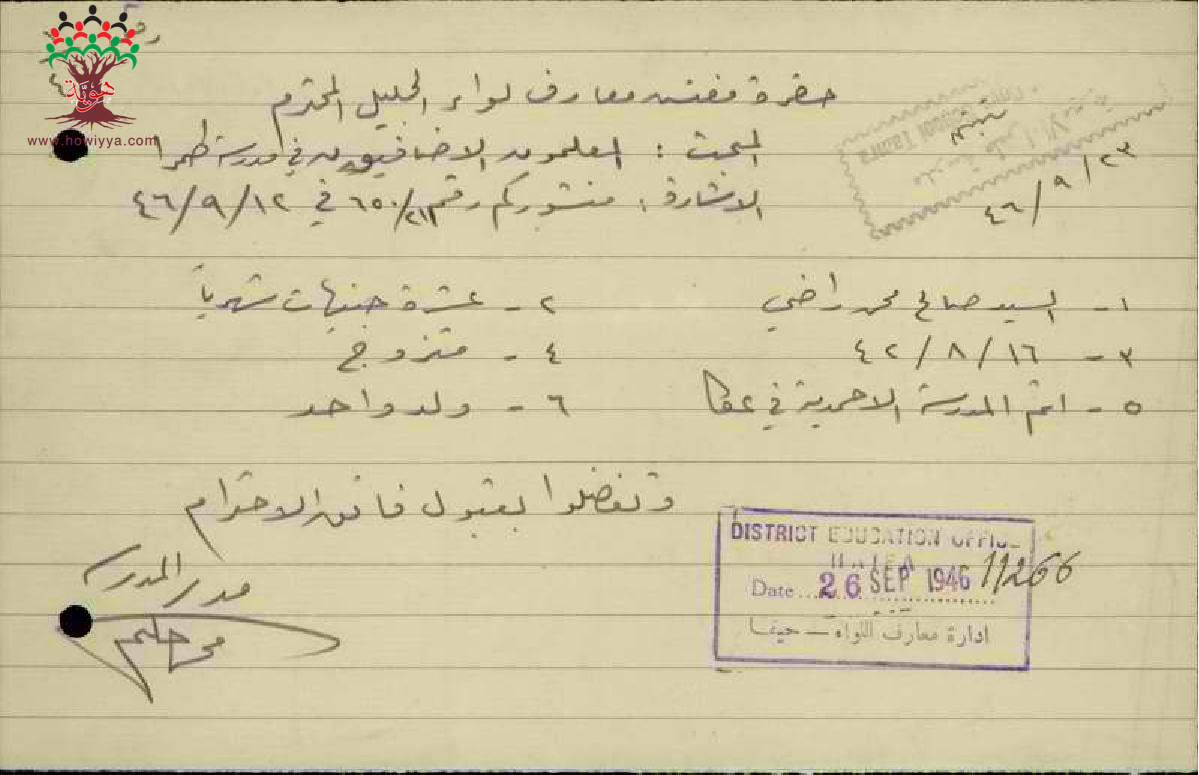 حضرة مفتش معارف لواء الجليل المحترم
المبحث : المعلمون الاضافيون في مدرسة طمرا
الاشارة : منشوركم رقم ٦٥٠/٢١ في ٤٦/٩/١٢
٤٦/٩/٢٣
١ - السيد صالح محمد راضي
٢ - عشرة جنيهات شهرياً
٣ - ٤٢/٨/١٦
٤ - متزوج
٥ - اتم المدرسة الاحمدية في عكا
٦ - ولد واحد
وتفضلوا بقبول فائق الاحترام
مدير المدرسة
DISTRICT EDUCATION OFFICE
HAIFA
Date 26 SEP 1946 11266
ادارة معارف اللواء - حيفا
هوية
www.howiyya.com